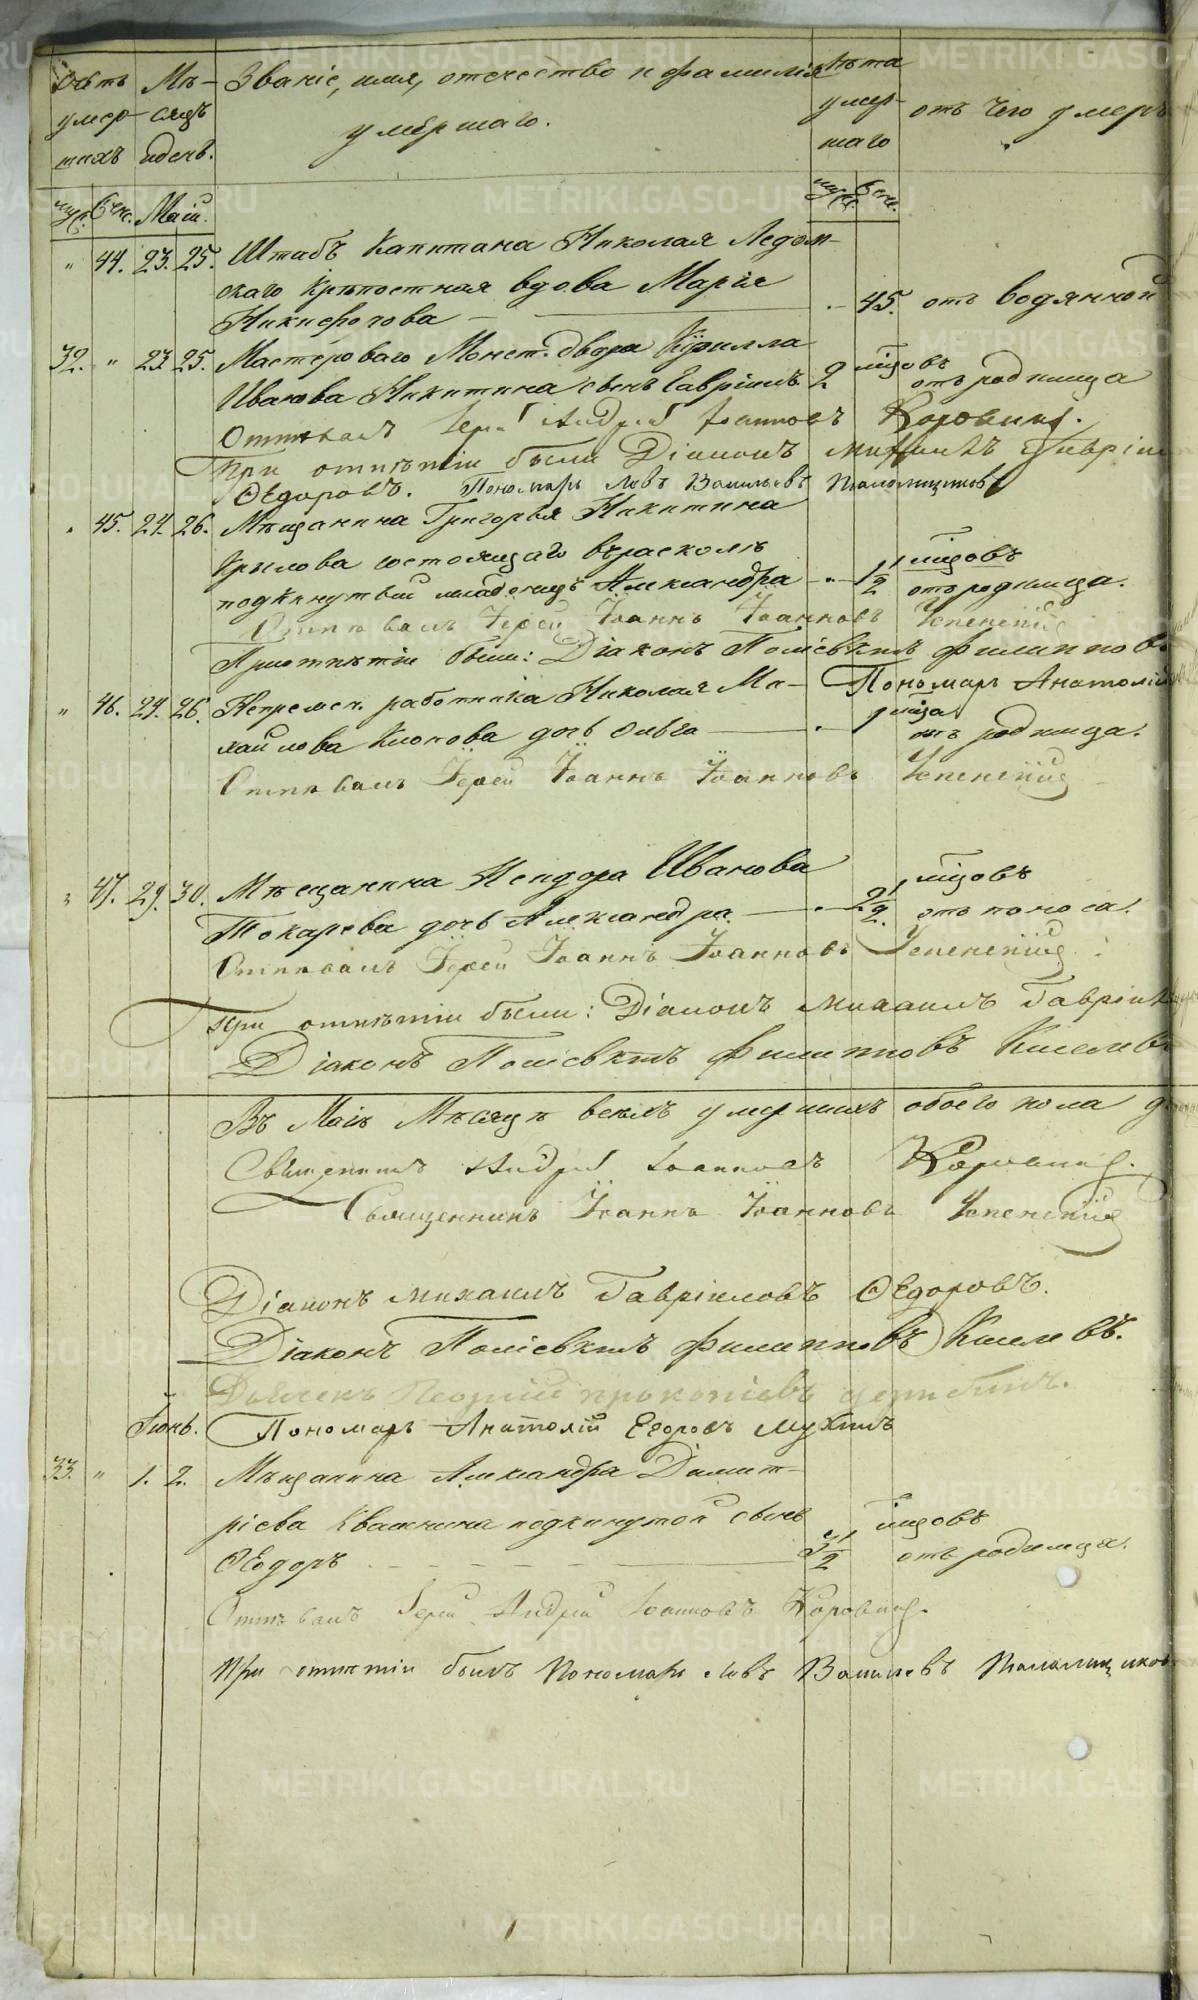 Счетъ Мѣ- Званіе, имя, отчество и фамилія Лѣта
умер- сяцъ умершаго. умер- отъ чего умеръ
шихъ и день. шаго
муж. жен. Маій. муж. жен.
" 44. 23. 25. Штабъ Капитана Николая Ледом-
скаго Крѣпостная вдова Марія
Никифорова — 45. отъ водянной
32. " 23. 25. Мастероваго Монет. двора Кирилла
Иванова Никитина сынъ Гавріилъ 2 мѣсцовъ отъ родимца
Отпѣвалъ Іерей Андрей Іоанновъ Коровинъ.
При отпѣтіи были Діаконъ Михаилъ Гавріи
Ѳедоровъ. Пономарь Левъ Васильевъ
" 45. 24. 26. Мѣщанина Григорья Никитина
Крылова состоящаго въ расколѣ
подкинутый младенецъ Александра — 1½ мѣсцовъ отъ родимца.
Отпѣвалъ Іерей Іоаннъ Іоанновъ Успенскій
При отпѣтіи были: Діаконъ Полієвктъ Филиппов
Пономарь Анатолій
" 46. 24. 26. Непремен. работника Николая Ми-
хайлова Клопова дочь Ольга — 1 мѣсца отъ родимца.
Отпѣвалъ Іерей Іоаннъ Іоанновъ Успенскій
" 47. 29. 30. Мѣщанина Исидора Иванова
Токарева дочь Александра — 2½ мѣсцовъ отъ поноса.
Отпѣвалъ Іерей Іоаннъ Іоанновъ Успенскій
При отпѣтіи были: Діаконъ Михаилъ Гавріил
Діаконъ Полієвктъ Филипповъ Киселев
Въ Маіѣ Мѣсяцѣ всѣхъ умершихъ обоего пола
Священникъ Андрей Іоанновъ Коровинъ.
Священникъ Іоаннъ Іоанновъ Успенскій
Діаконъ Михаилъ Гавріиловъ Ѳедоровъ.
Діаконъ Полієвктъ Филипповъ Киселевъ.
Георгій Прокопіевъ
Іюнь. Пономарь Анатолій Егоровъ Мухинъ
33. " 1. 2. Мѣщанина Александра Димит-
ріева Квашнина подкинутой сынъ
Ѳеодоръ — 3½ мѣсцовъ отъ родимца.
Отпѣвалъ Іерей Андрей Іоанновъ Коровинъ.
При отпѣтіи былъ Пономарь Левъ Васильевъ
METRIKI.GASO-URAL.RU